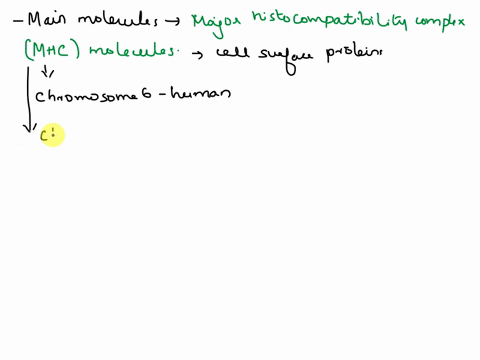 - Main molecules → Major histocompatibility complex
(MHC) molecules. → cell surface proteins
chromosome 6 - human